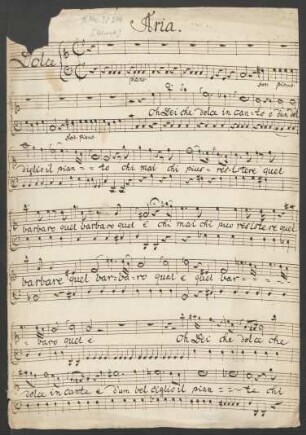 Aria.
Dolce
piano
for piano
Oh Dei che dolce in can=to e d'un bel
for piano
ciglio il pian===to chi mai chi puo=resistere quel
barbaro quel barbaro quel e chi mai chi puo resistere quel
barbare quel bar=ba=ro quel e quel bar===
baro quel e Oh Dei che dolce che
dolce in canto e d'un bel ciglio il pian====to chi